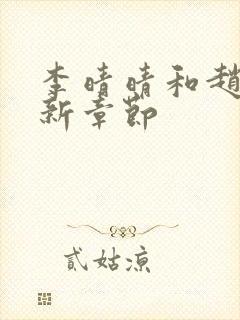 李晴晴和趙
新章節
貳姑涼